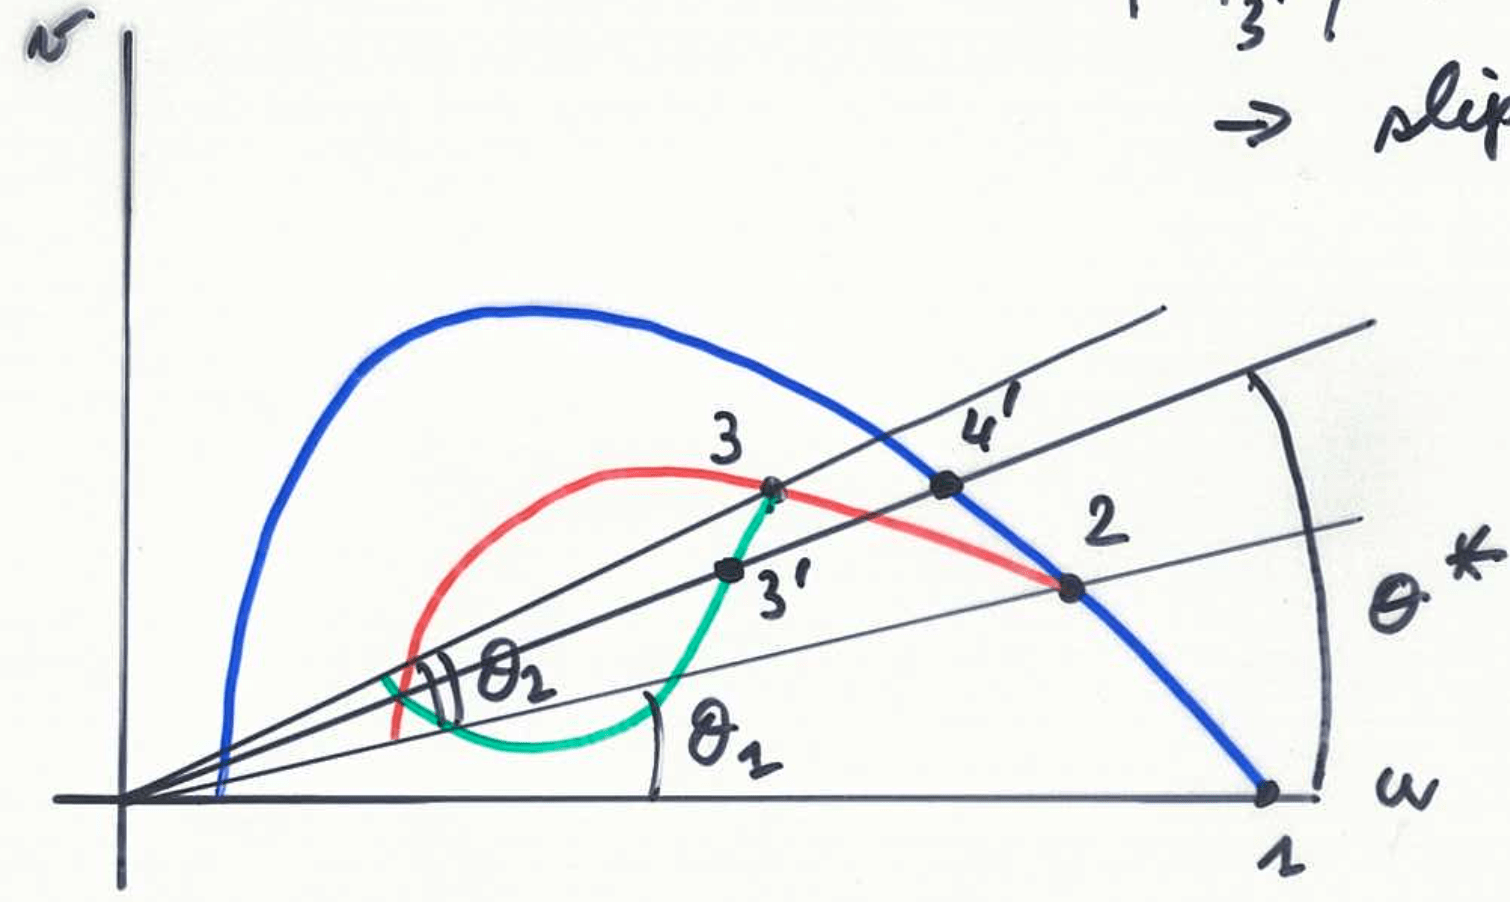 v
3'
→ slip
3
4'
2
3'
θ2
θ1
θ*
u
1